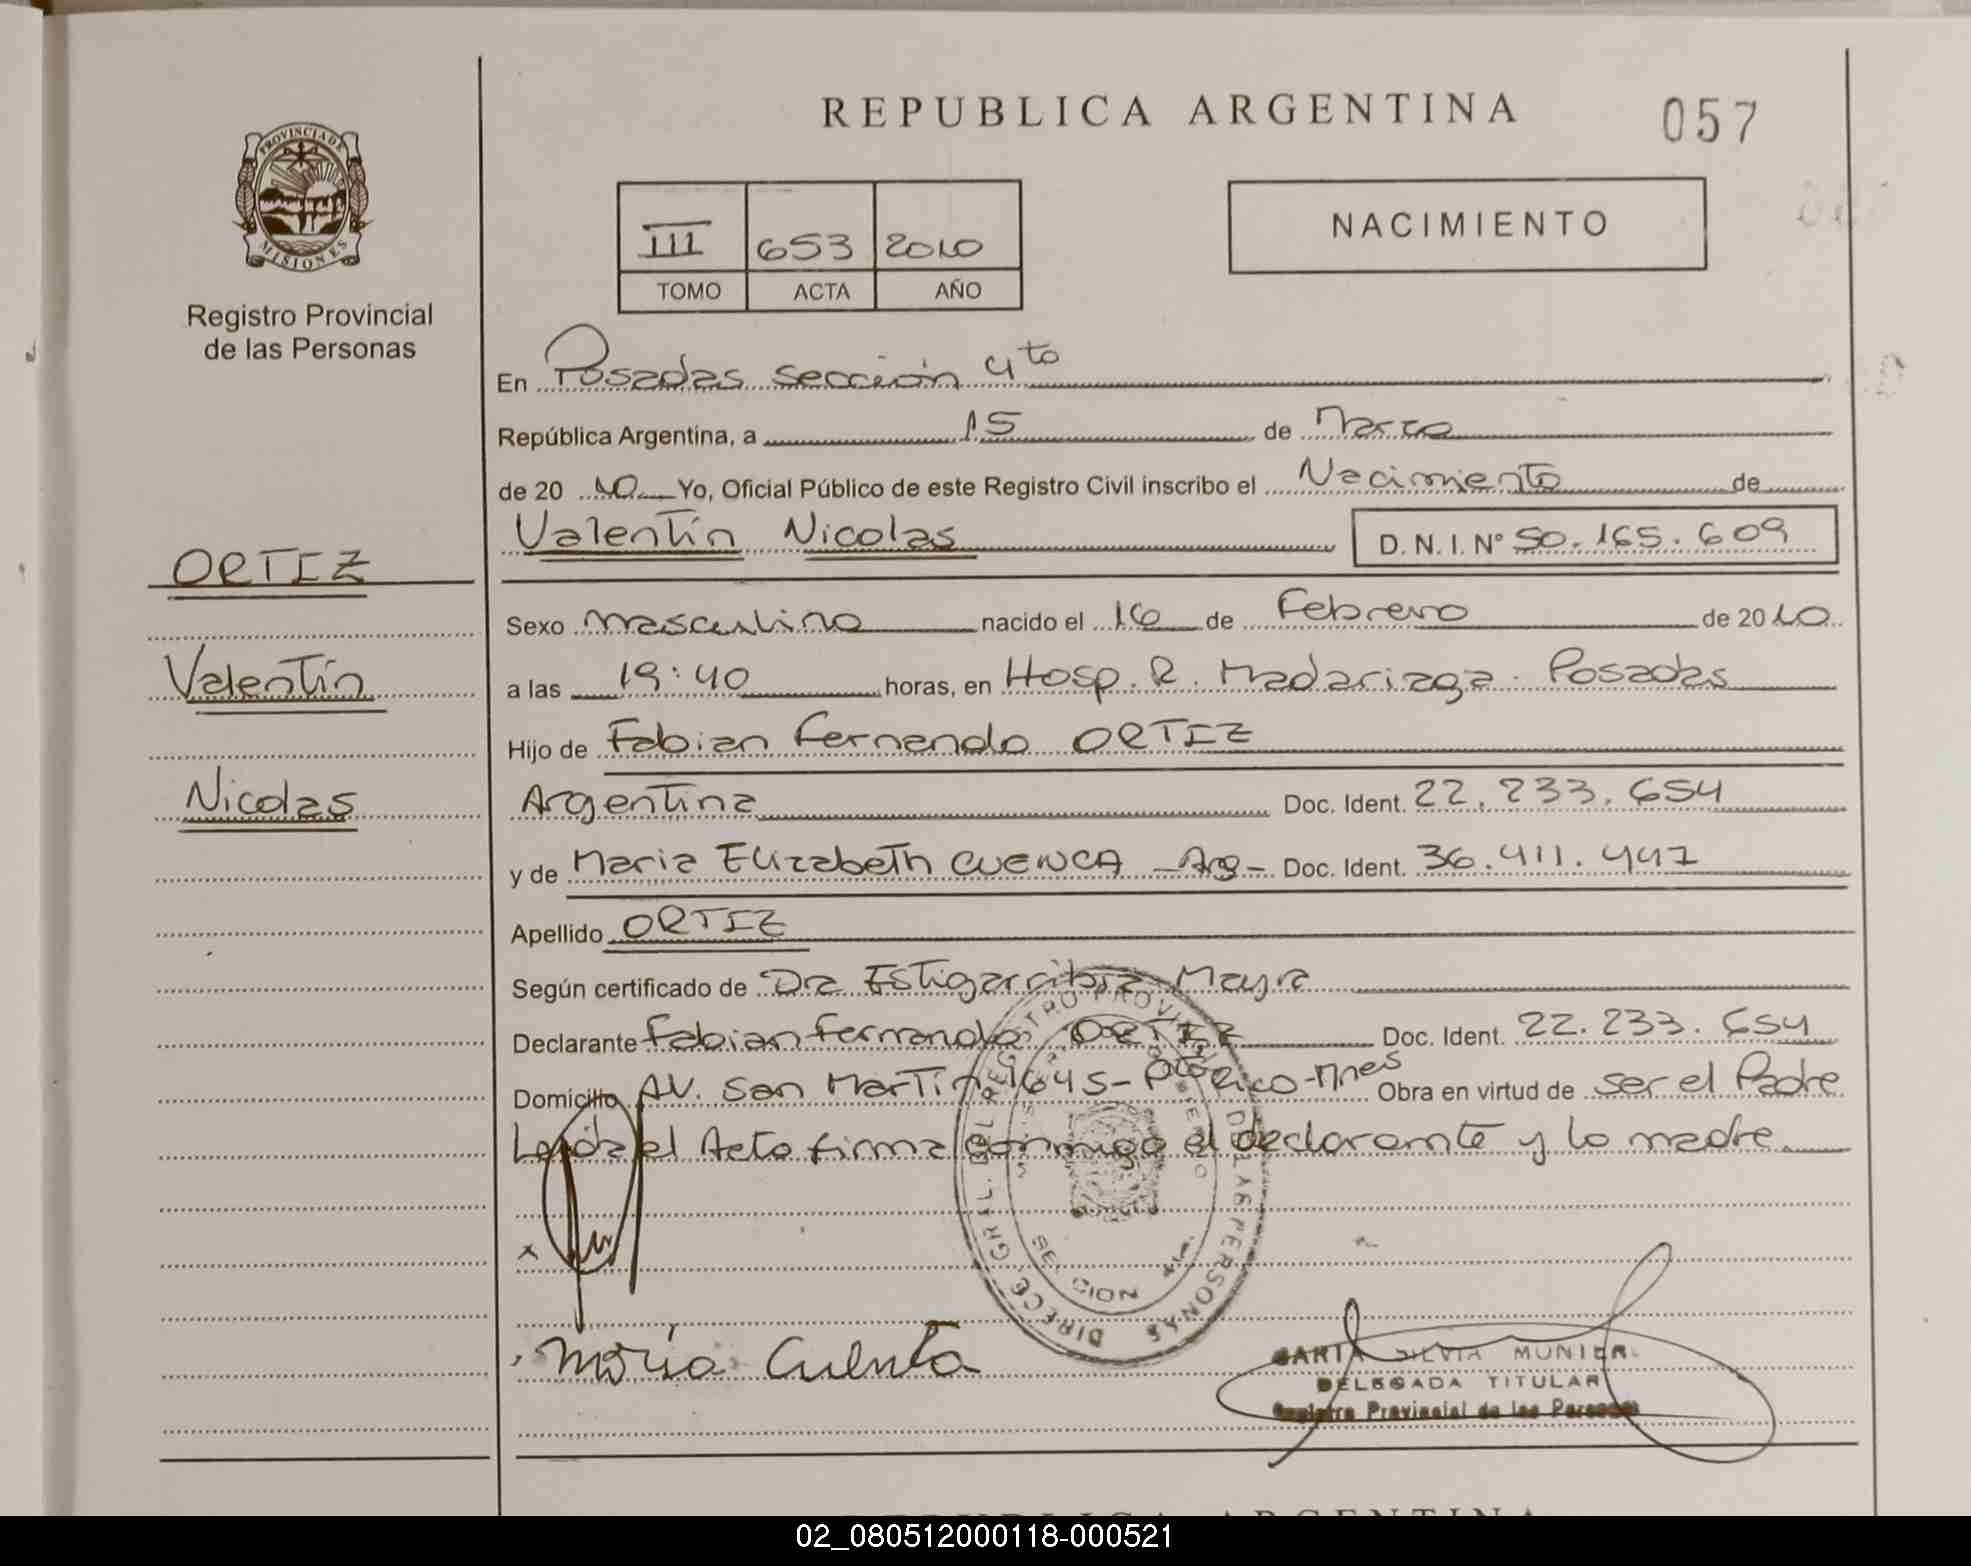 REPUBLICA ARGENTINA
057
PROVINCIA DE
MISIONES
Registro Provincial
de las Personas
NACIMIENTO
III 653 2010
TOMO ACTA AÑO
En Posadas sección 4to
República Argentina, a 15 de Marzo
de 20 10 Yo, Oficial Público de este Registro Civil inscribo el Nacimiento de
Valentín Nicolas D. N. I. N° 50.165.609
ORTIZ
Valentín
Nicolas
Sexo masculino nacido el 16 de Febrero de 2010
a las 19:40 horas, en Hosp. R. Madariaga. Posadas
Hijo de Fabian Fernando ORTIZ
Argentina Doc. Ident. 22.233.654
y de Maria Elizabeth CUENCA - Arg - Doc. Ident. 36.411.447
Apellido ORTIZ
Según certificado de Dra Estigarribia Mayra
Declarante Fabian Fernando ORTIZ Doc. Ident. 22.233.654
Domicilio AV. San Martín 1645 - Pto Rico - Mnes Obra en virtud de ser el Padre
Leída el Acta firma conmigo el declarante y la madre
DIRECC. GRAL. DEL REGISTRO PROVINCIAL DE LAS PERSONAS
x
María Cuenca
MARTA SILVIA MUNIER
DELEGADA TITULAR
Registro Provincial de las Personas
REPUBLICA ARGENTINA
02_080512000118-000521